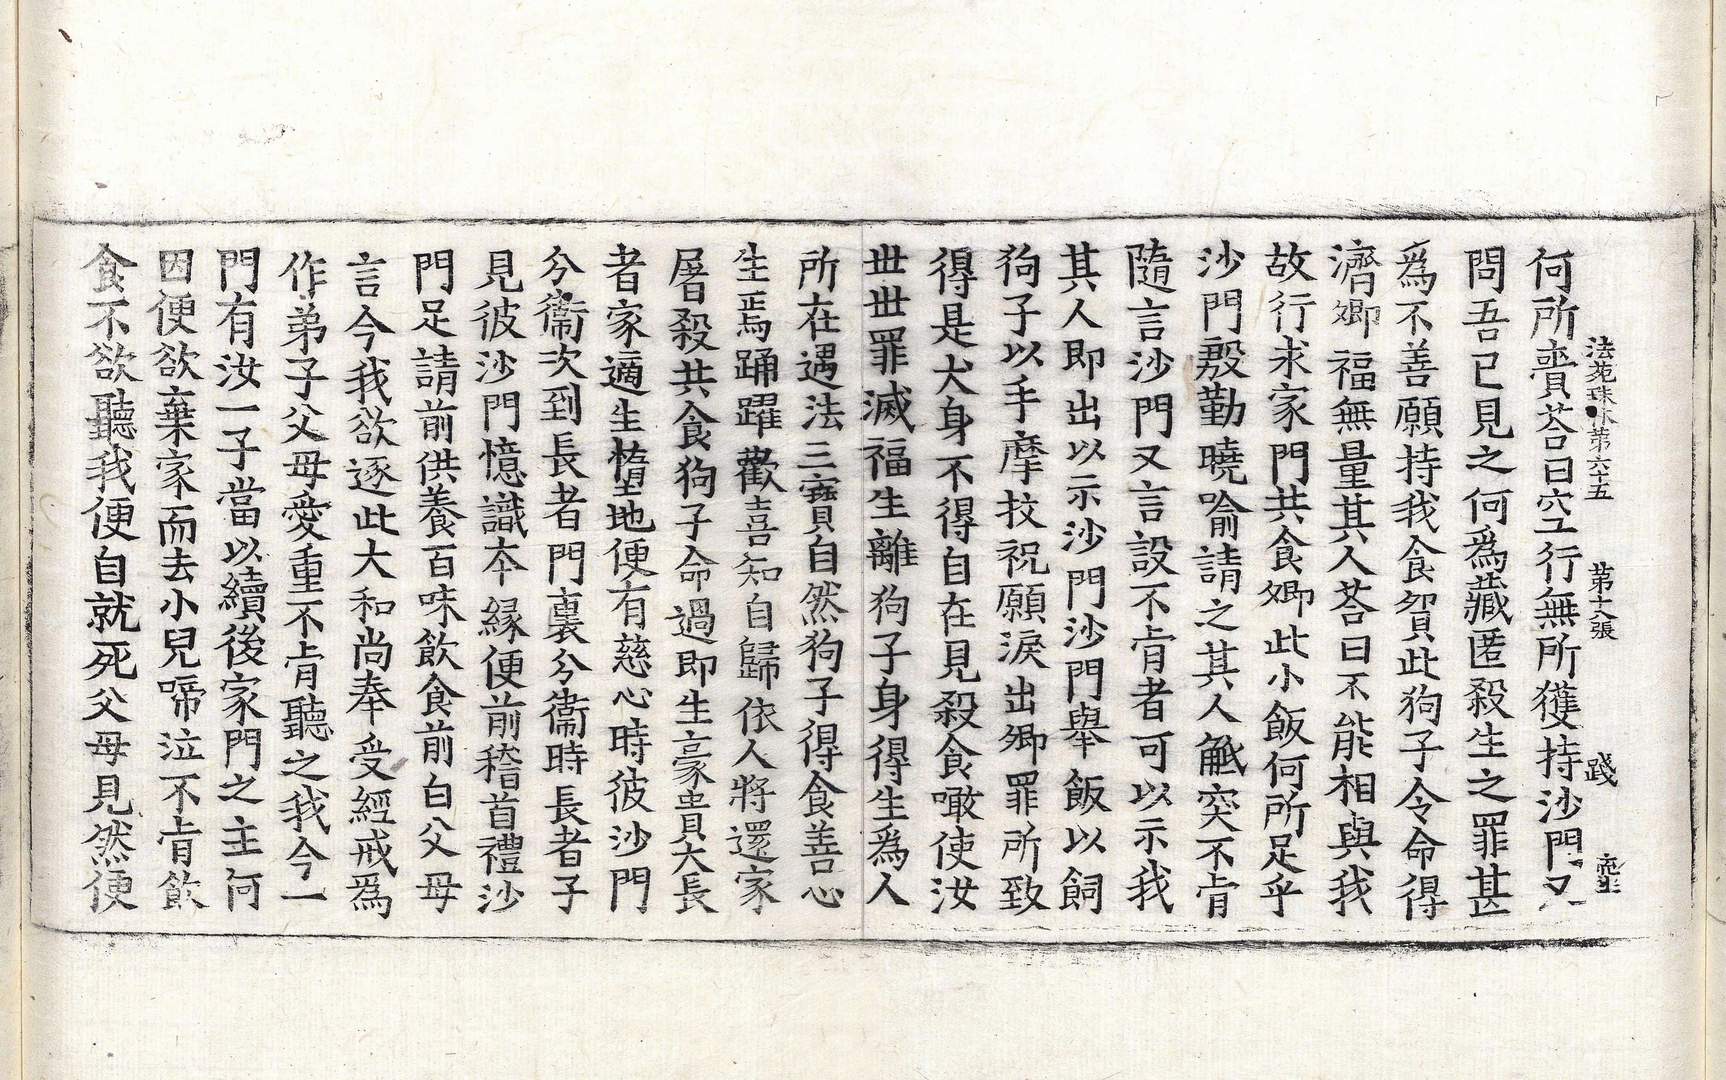 法苑珠林第六十五 第十八張 踐
何所賷荅曰空行無所獲持沙門又
問吾已見之何爲藏匿殺生之罪甚
爲不善願持我食貿此狗子令命得
濟卿福無量其人荅曰不能相與我
故行求家門共食卿此小飯何所足乎
沙門殷勤曉喻請之其人觝突不肯
隨言沙門又言設不肯者可以示我
其人即出以示沙門沙門舉飯以飼
狗子以手摩抆祝願淚出卿罪所致
得是犬身不得自在見殺食噉使汝
世世罪滅福生離狗子身得生爲人
所在遇法三寶自然狗子得食善心
生焉踊躍歡喜知自歸依人將還家
屠殺共食狗子命過即生豪貴大長
者家適生墮地便有慈心時彼沙門
分衞次到長者門裏分衞時長者子
見彼沙門憶識本緣便前稽首禮沙
門足請前供養百味飲食前白父母
言今我欲逐此大和尚奉受經戒爲
作弟子父母愛重不肯聽之我今一
門有汝一子當以續後家門之主何
因便欲棄家而去小兒啼泣不肯飲
食不欲聽我便自就死父母見然便